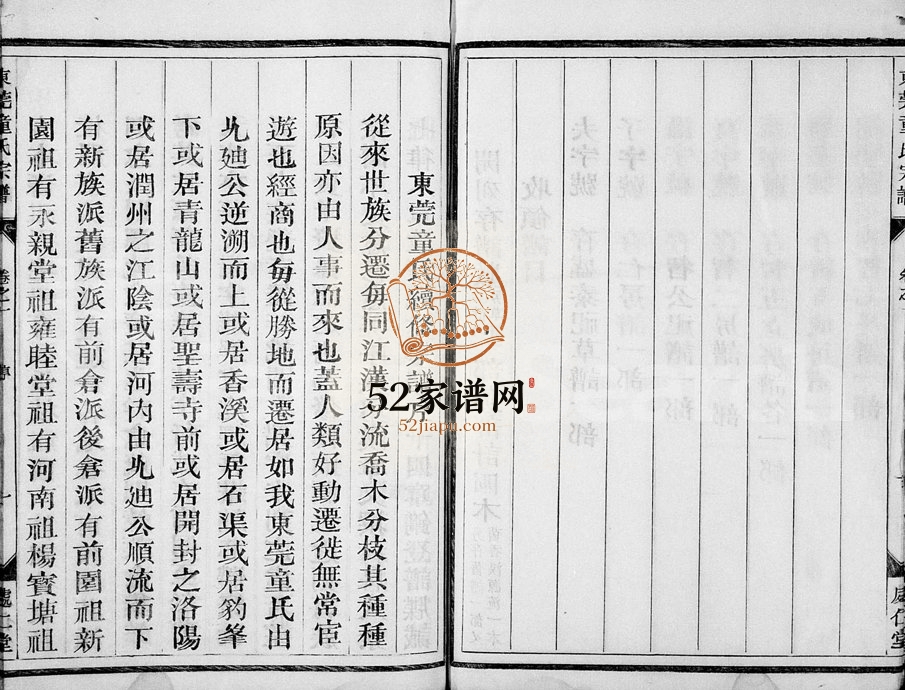 東莞童氏續修宗譜序
從來世族分遷每同江漢分流喬木分枝其種種
原因亦由人事而來也蓋人類好動遷徙無常宦
遊也經商也每從勝地而遷居如我東莞童氏由
九廸公逆溯而上或居香溪或居石渠或居豹峯
下或居青龍山或居聖壽寺前或居開封之洛陽
或居潤州之江陰或居河內由九廸公順流而下
有新族派舊族派有前倉派後倉派有前園祖新
園祖有永親堂祖雍睦堂祖有河南祖楊賓塘祖
東莞童氏宗譜
卷之一
序
一
處仁堂
52家谱网
52jiapu.com